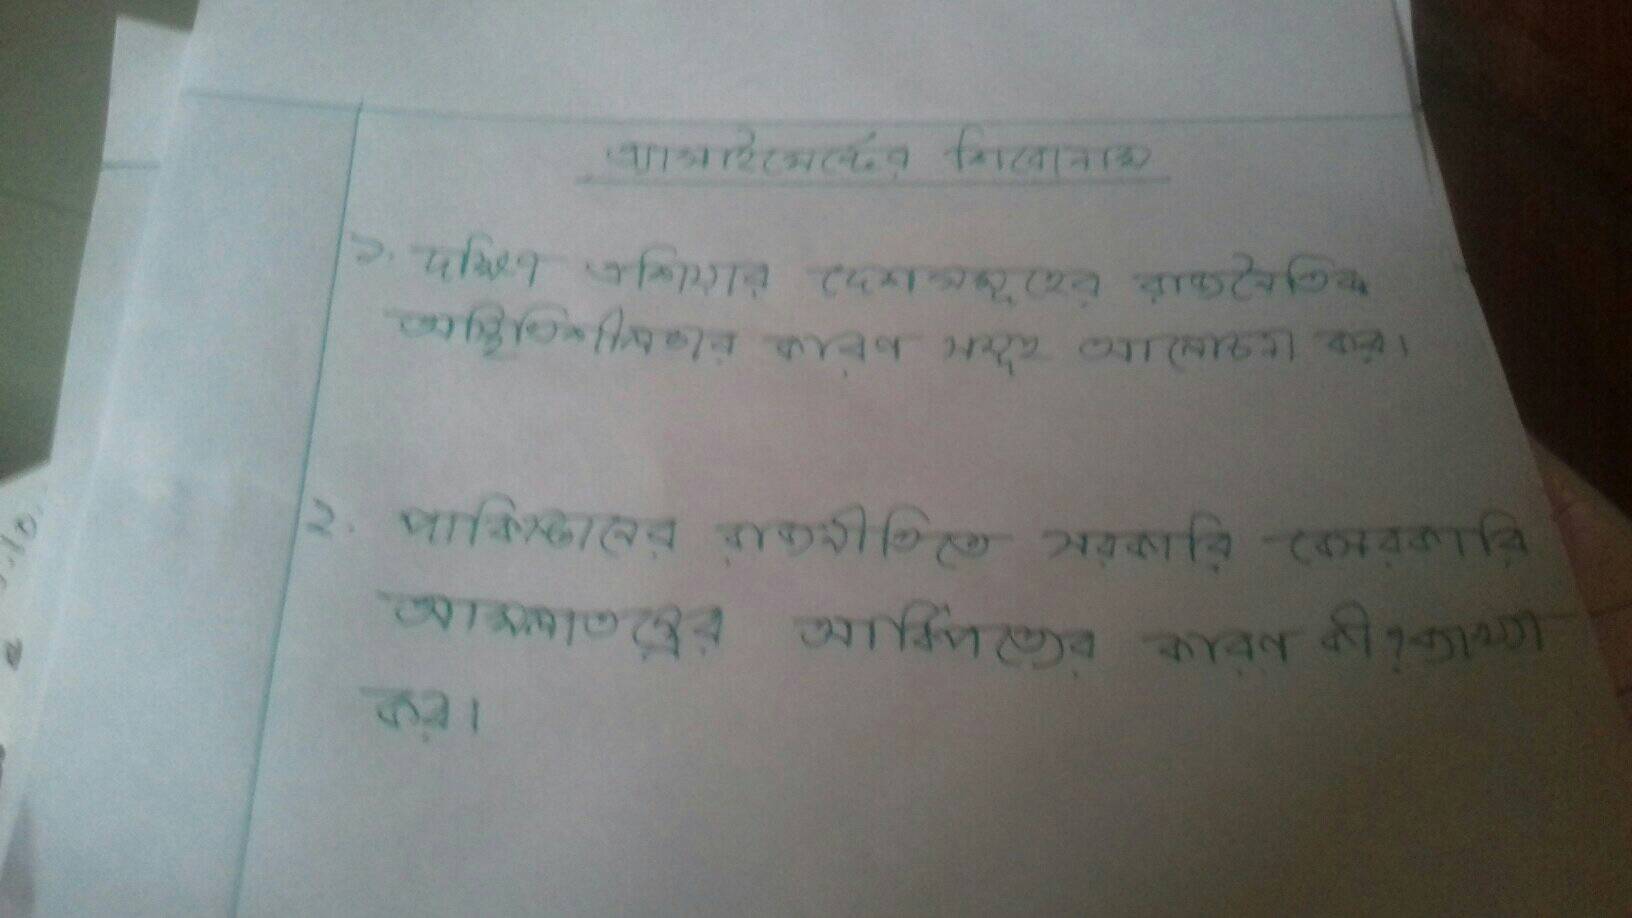 এ্যাসাইমেন্টের শিরোনাম
১. দক্ষিণ এশিয়ার দেশসমূহের রাজনৈতিক
অস্থিতিশীলতার কারণ সমূহ আলোচনা কর।
২. পাকিস্তানের রাজনীতিতে সরকারি বেসরকারি
আমলাতন্ত্রের আধিপত্যের কারণ কী? ব্যাখ্যা
কর।